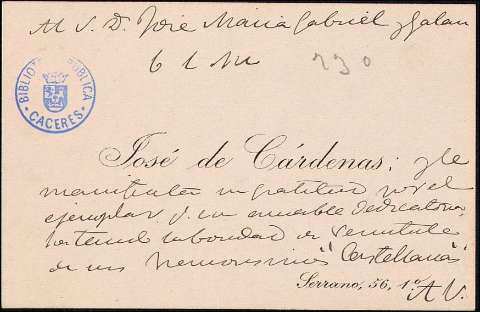 Al S. D. José María Gabriel y Galan
b l m
230
BIBLIOTECA PUBLICA
CACERES
José de Cárdenas; y le
manifiesta su gratitud por el
ejemplar y su amable dedicatoria
de sus "Castellanas"
Serrano, 56, 1º
A V.